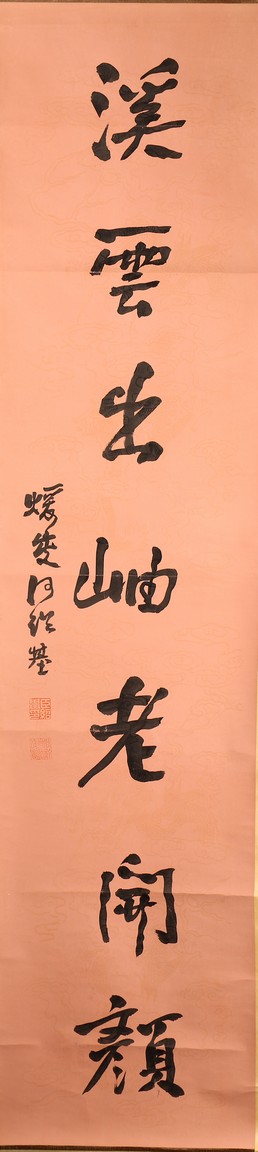 溪雲出岫老開顏
媛叟何紹基